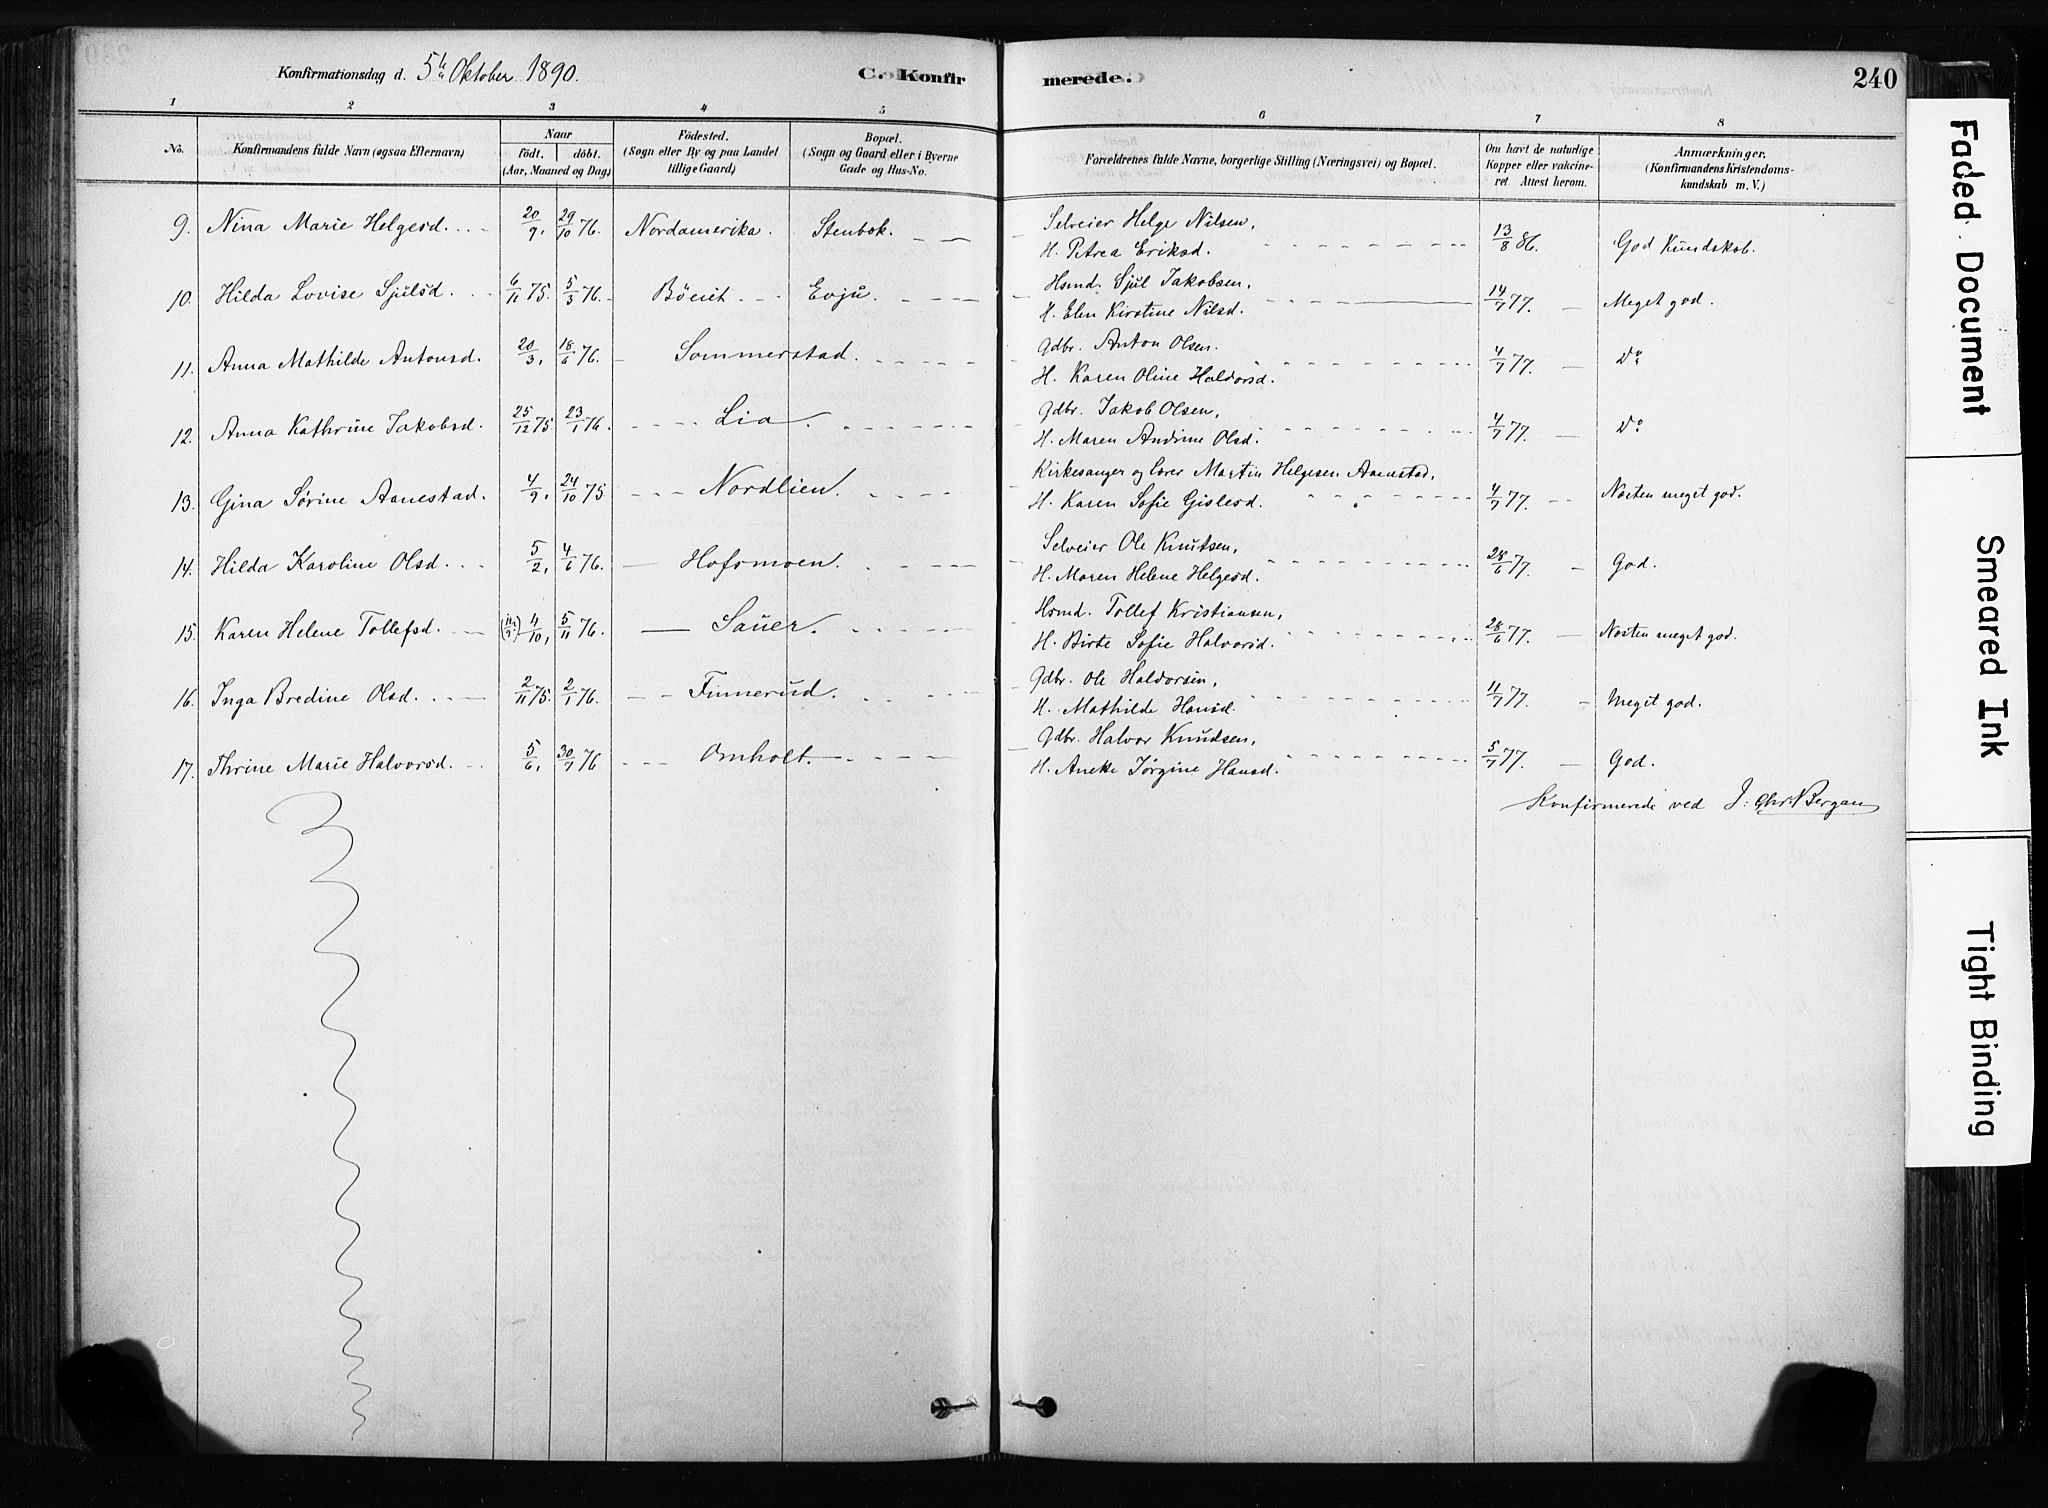 Konfirmationsdag d. 5te Oktober 1890. C. Konfirmerede. 240
1 2 3 4 5 6 7 8
No. Konfirmandens fulde Navn (ogsaa Efternavn) Naar födt. döbt. (Aar, Maaned og Dag) Födested. (Sogn eller By og paa Landet tillige Gaard) Bopæl. (Sogn og Gaard eller i Byerne Gade og Hus-No. Forældrenes fulde Navne, borgerlige Stilling (Næringsvei) og Bopæl. Om havt de naturlige Kopper eller vakcineret. Attest herom. Anmærkninger. (Konfirmandens Kristendomskundskab m. V.)
9. Nina Marie Helgesd. 20/9, 29/10 76. Nordamerika. Stenbok. Selveier Helge Nilsen, 13/8 86. God Kundskab.
H. Petrea Eriksd.
10. Hilda Lovise Sjulsd. 6/11 75. 5/3 76. Böeiet Evju. Hsmd. Sjul Jakobsen, 14/7 77. Meget god.
H. Elen Kirstine Nilsd.
11. Anna Mathilde Antonsd. 20/3, 18/6 76. Sommerstad. Gdbr. Anton Olsen. 4/7 77. Do
H. Karen Oline Haldorsd.
12. Anna Kathrine Jakobsd. 25/12 75. 23/1 76. Lia. Gdbr. Jakob Olsen, 4/7 77. Do
H. Maren Andrine Olsd.
13. Gina Sørine Aanestad. 4/9, 24/10 75 Nordlien. Kirkesanger og Lærer Martin Helgesen Aanestad, 4/7 77. Næsten meget god.
H. Karen Sofie Gislesd.
14. Hilda Karoline Olsd. 5/2, 4/6 76. Hofsmoen. Selveier Ole Knutsen, 28/6 77. God.
H. Maren Helene Helgesd.
15. Karen Helene Tollefsd. 4/10, 5/11 76. Sauer. Hsmd. Tollef Kristiansen, 28/6 77. Næsten meget god.
H. Birte Sofie Halvorsd.
16. Inga Bredine Olsd. 2/11 75. 2/1 76. Finnerud. Gdbr. Ole Haldorsen, 4/7 77. Meget god.
H. Mathilde Hansd.
17. Thrine Marie Halvorsd. 5/6, 30/7 76 Omholt. Gdbr. Halvor Knudsen, 5/7 77. God.
H. Aneke Jørgine Hansd.
Konfirmerede ved J. Chr. Bergan
Faded Document
Smeared Ink
Tight Binding